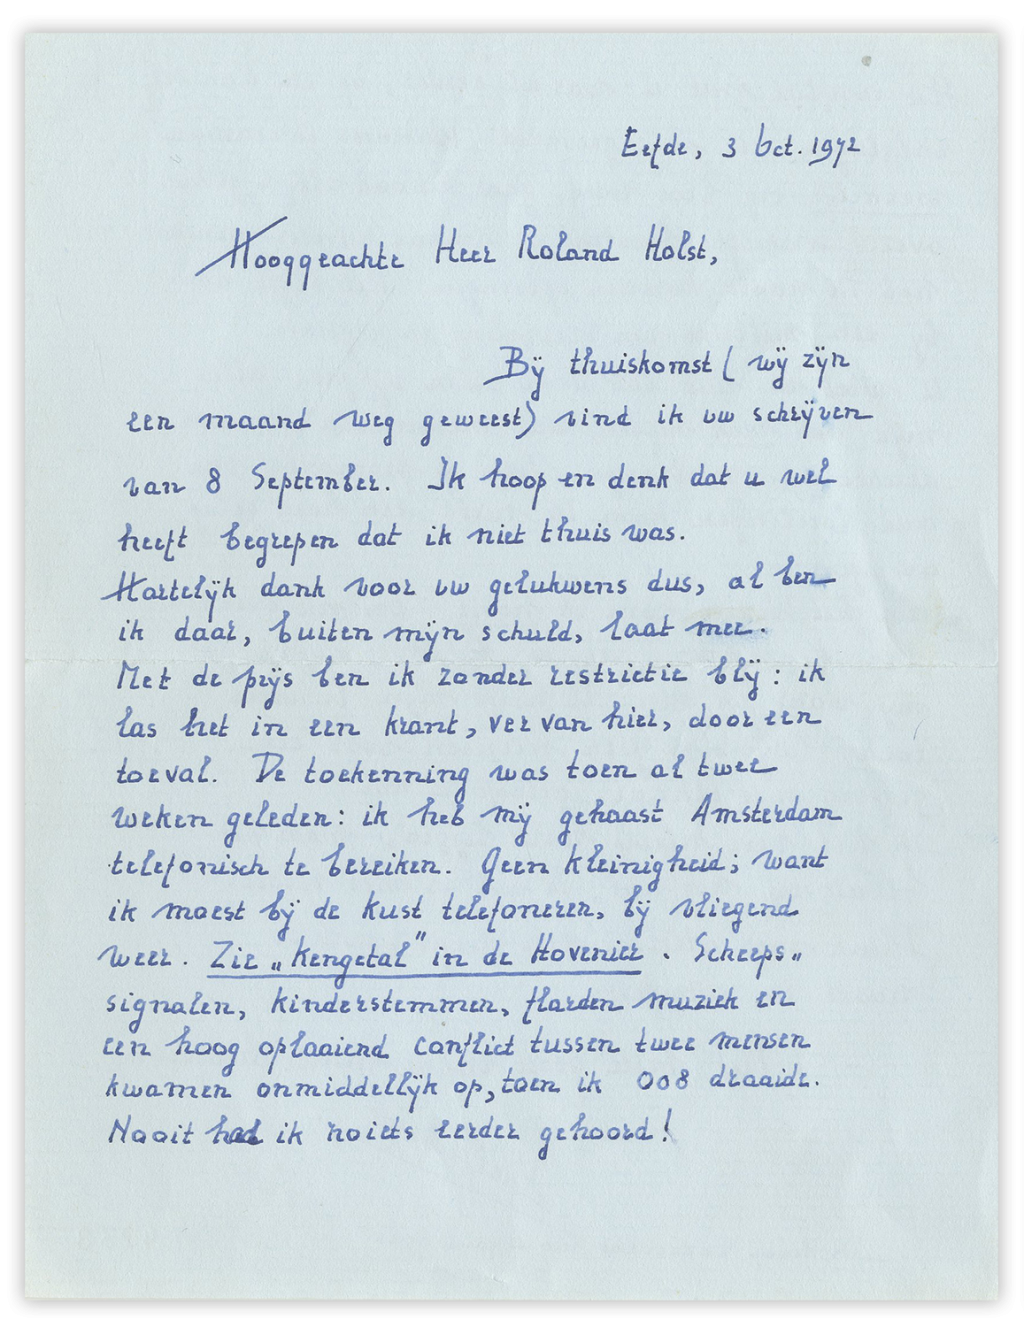 Eefde, 3 Oct. 1972
Hooggeachte Heer Roland Holst,
Bij thuiskomst (wij zijn
een maand weg geweest) vind ik uw schrijven
van 8 September. Ik hoop en denk dat u wel
heeft begrepen dat ik niet thuis was.
Hartelijk dank voor uw gelukwens dus, al ben
ik daar, buiten mijn schuld, laat mee.
Met de prijs ben ik zonder restrictie blij: ik
las het in een krant, ver van hier, door een
toeval. De toekenning was toen al twee
weken geleden: ik heb mij gehaast Amsterdam
telefonisch te bereiken. Geen kleinigheid; want
ik moest bij de kust telefoneren, bij vliegend
weer. Zie „Kengetal" in de Hovenier. Scheeps„
signalen, kinderstemmen, flarden muziek en
een hoog oplaaiend conflict tussen twee mensen
kwamen onmiddellijk op, toen ik 008 draaide.
Nooit had ik zoiets eerder gehoord!